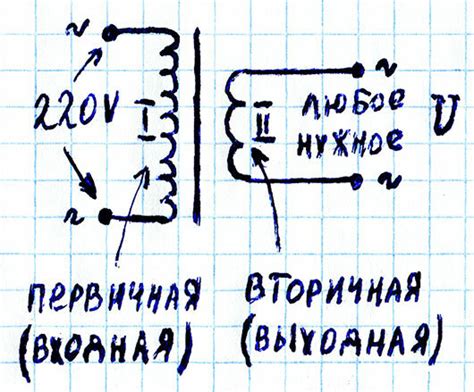 ~
220V
I
~
~
II
ЛЮБОЕ
НУЖНОЕ
U
~
ПЕРВИЧНАЯ
(ВХОДНАЯ)
ВТОРИЧНАЯ
(ВЫХОДНАЯ)